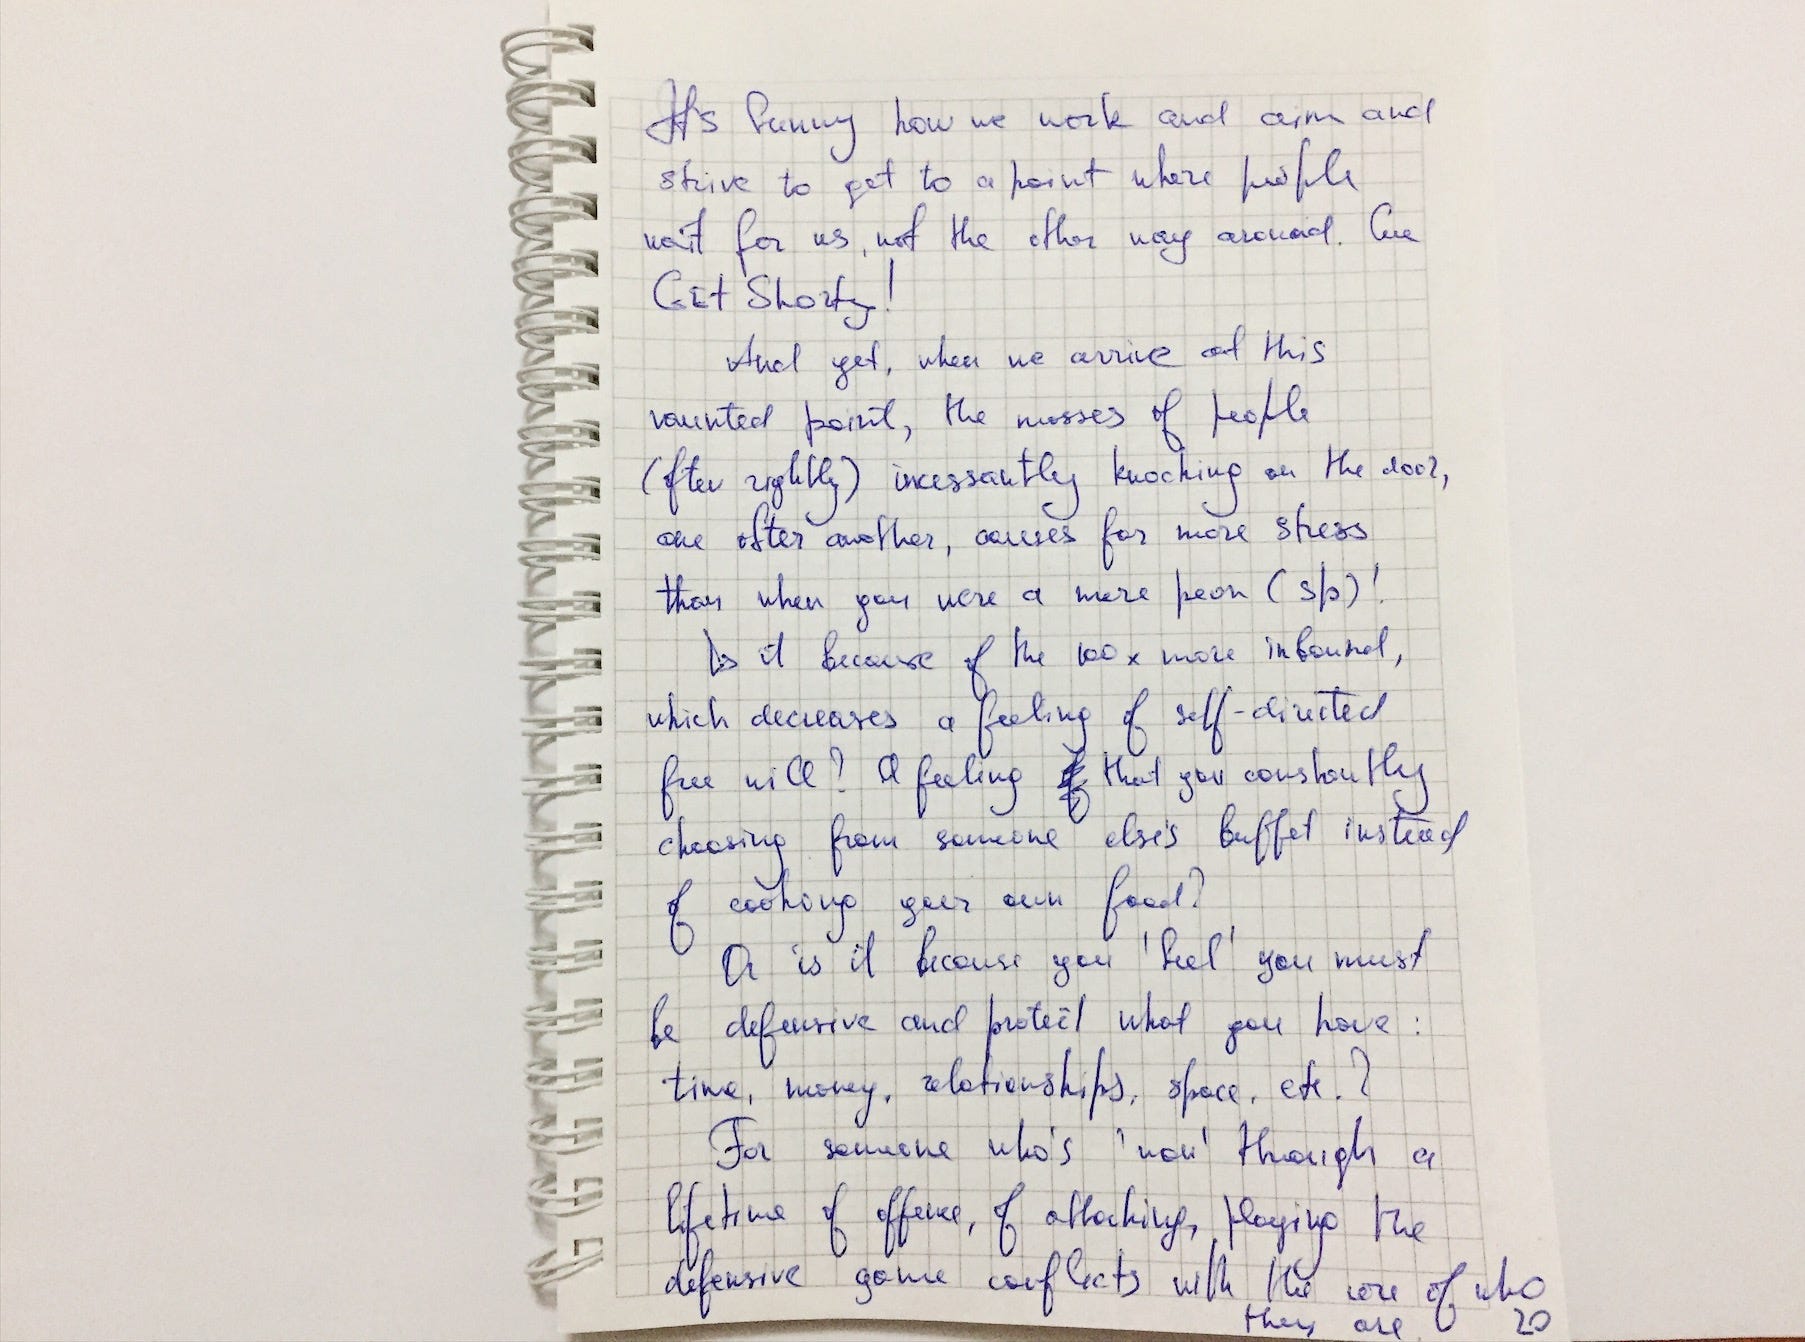 It's funny how we work and aim and
strive to get to a point where people
wait for us, not the other way around. Cue
Get Shorty!
And yet, when we arrive at this
vaunted point, the masses of people
(often rightly) incessantly knocking on the door,
one after another, causes far more stress
than when you were a mere peon (sp)!
Is it because of the 100x more inbound,
which decreases a feeling of self-directed
free will? A feeling that you constantly
choosing from someone else's buffet instead
of cooking your own food?
Or is it because you 'feel' you must
be defensive and protect what you have:
time, money, relationships, space, etc.?
For someone who's 'won' through a
lifetime of offense, of attacking, playing the
defensive game conflicts with the core of who
they are. 20